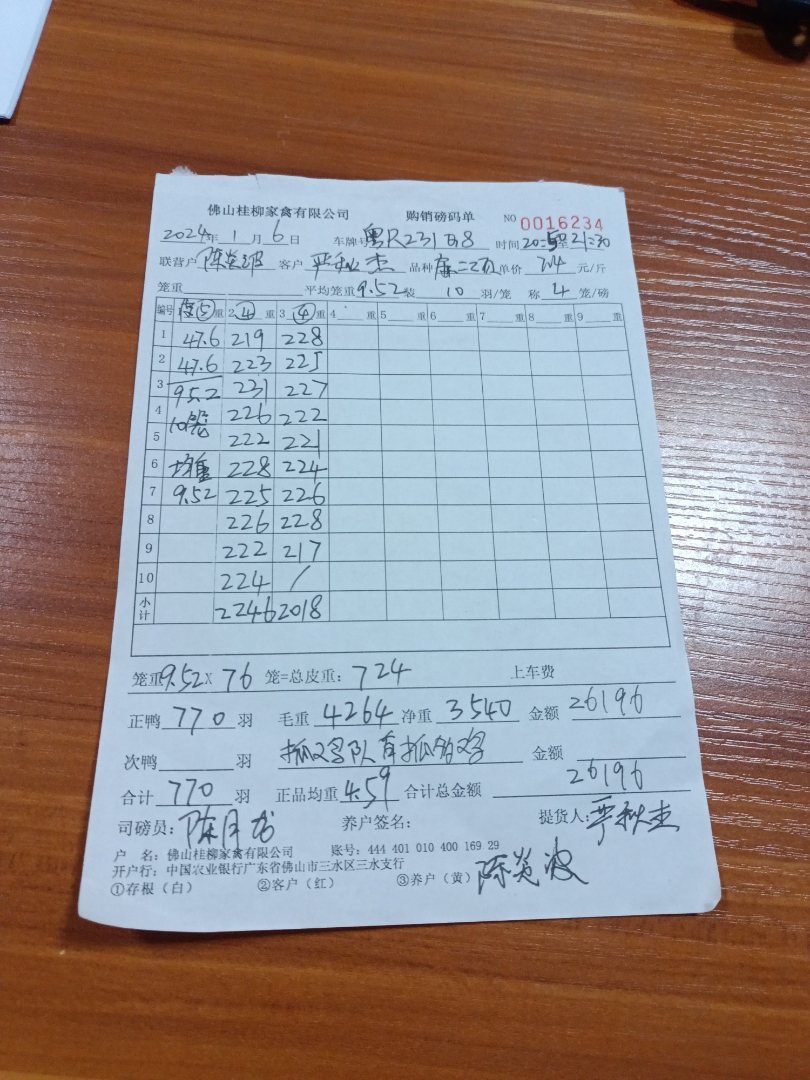 佛山桂柳家禽有限公司 购销磅码单 NO 0016234
2024年 1 月 6 日 车牌号 粤R231 时间 20:50至21:30
联营户 陈炎波 客户 严秋杰 品种 单价 7.4 元/斤
笼重 平均笼重 9.52 装 10 羽/笼 称 4 笼/磅
编号 ⑤重 2 ④ 重 3 ④ 重 4 重 5 重 6 重 7 重 8 重 9 重
1 47.6 219 228
2 47.6 223 225
3 95.2 231 227
4 10笼 226 222
5 222 221
6 均重 228 224
7 9.52 225 226
8 226 228
9 222 217
10 224 /
小计 2246 2018
笼重 9.52 X 76 笼=总皮重: 724 上车费
正鸭 770 羽 毛重 4264 净重 3540 金额 26196
次鸭 羽 金额
合计 770 羽 正品均重 4.59 合计总金额 26196
司磅员: 陈月龙 养户签名: 提货人: 严秋杰
户 名: 佛山桂柳家禽有限公司 账号: 444 401 010 400 169 29
开户行: 中国农业银行广东省佛山市三水区三水支行
①存根(白) ②客户(红) ③养户(黄) 陈炎波